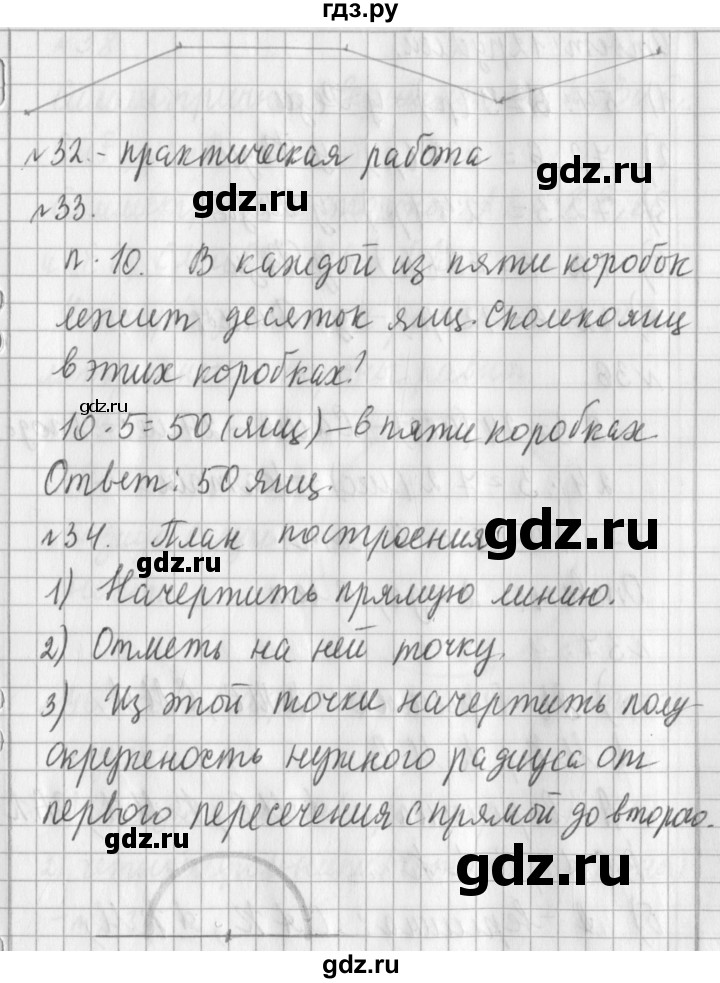 гдз.ру
№32.- практическая работа
gdz.ru
№33.
gdz.ru
п.10. В каждой из пяти коробок
лежит десяток яиц. Сколько яиц
в этих коробках?
gdz.ru
10·5=50 (яиц) – в пяти коробках.
Ответ: 50 яиц.
№34. План построения
gdz.ru
gdz.ru
1) Начертить прямую линию.
2) Отметь на ней точку.
3) Из этой точки начертить полу-
окруженость нужного радиуса от
первого пересечения с прямой до второго.
gdz.ru
gdz.ru
gdz.ru